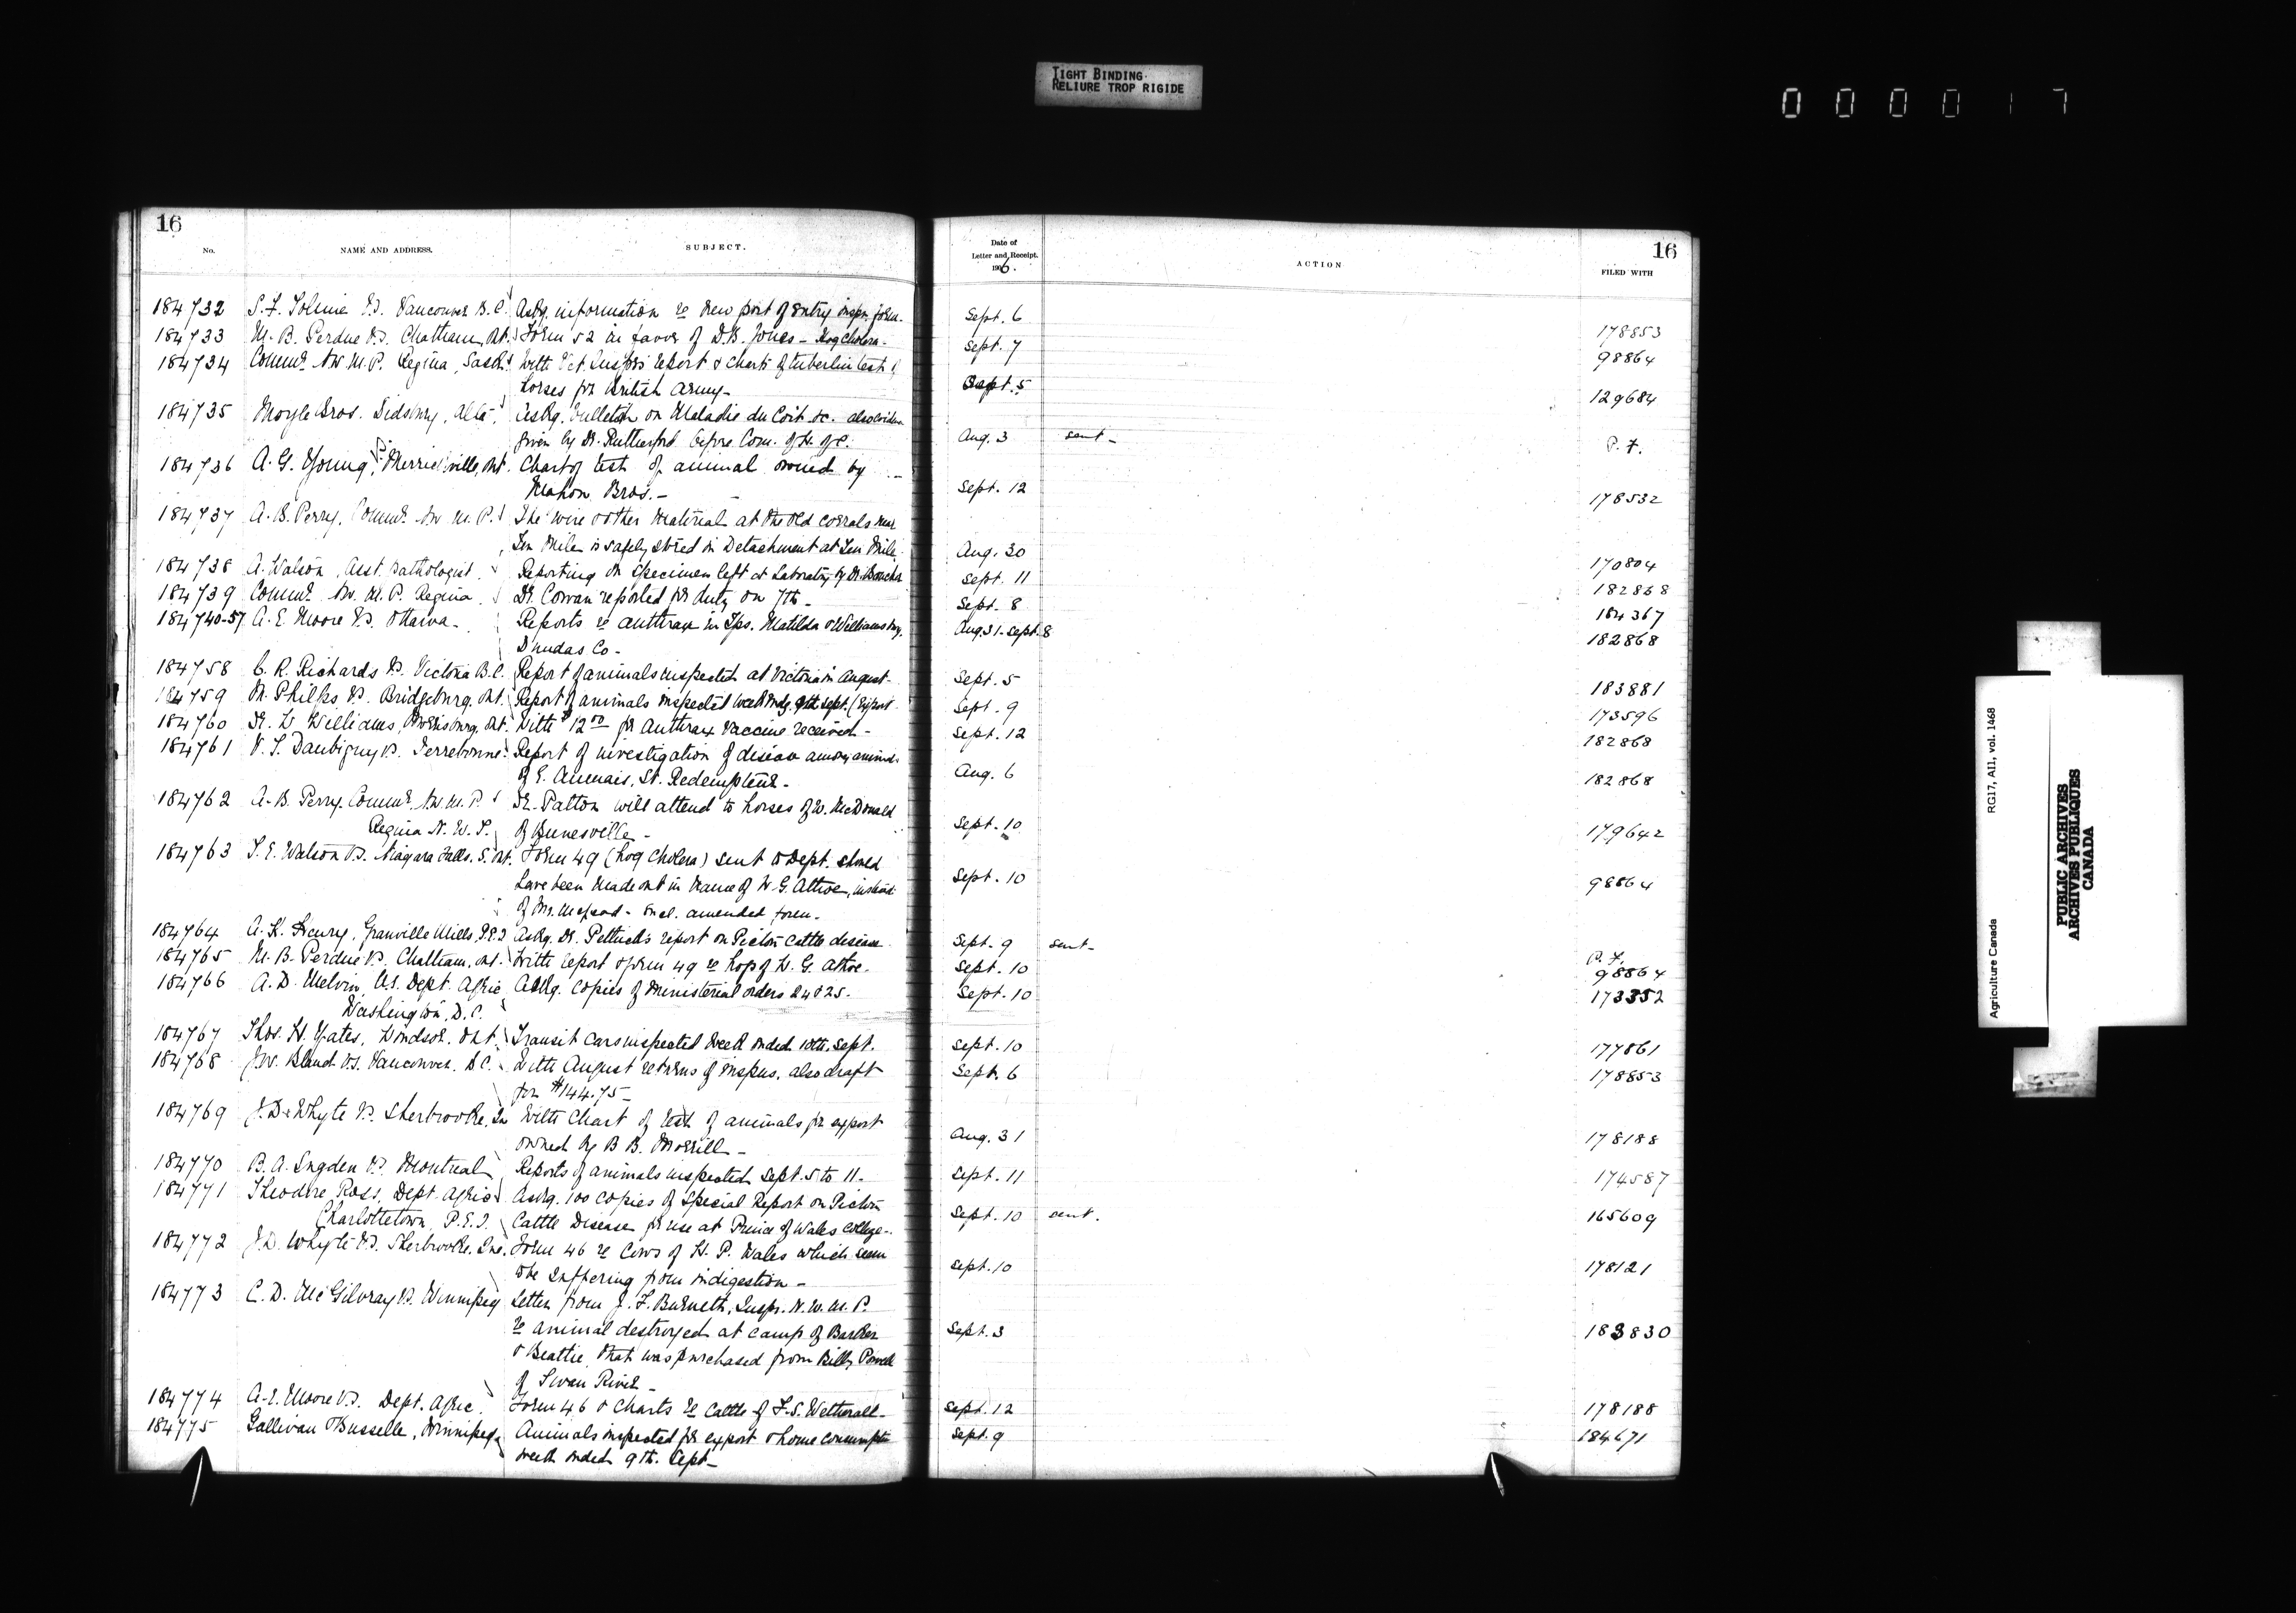 TIGHT BINDING
RELIURE TROP RIGIDE
000017
16
No.
NAME AND ADDRESS.
SUBJECT.
Date of
Letter and Receipt.
1906.
ACTION
FILED WITH
16
184732 S. F. Tolmie V.S. Vancouver B.C. Askg. information re new port of entry inspn. form. Sept. 6 178853
184733 M. B. Perdue V.S. Chatham, Ont. Form 52 in favor of D. B. Jones - Hog cholera - Sept. 7 98864
184734 Commr. N.W.M.P. Regina, Sask. With Vet. Inspr's report & charts of tuberlin test of
horses for British Army - Sept. 5 129684
184735 Moyle Bros. Didsbury, Alta. Askg. bulletin on Maladie du Coit &c. also
given by Dr. Rutherford before Com. of H. of C. Aug. 3 sent - P. F.
184736 A. G. Young, V.S. Merrickville, Ont. Chart of test of animal owned by
Mahon Bros. - Sept. 12 178532
184737 A. B. Perry, Commr. N.W.M.P. The wire & other material at the old corrals near
Ten Mile is safely stored in Detachment at Ten Mile. Aug. 30 170804
184738 A. Watson, Asst. Pathologist Reporting on specimen left at Laboratory by Dr. Sept. 11 182868
184739 Commr. N.W.M.P. Regina Dr. Cowan reported for duty on 7th - Sept. 8 184367
184740-57 A. E. Moore V.S. Ottawa - Reports re anthrax in Tps. Matilda & Williamsburg, Aug. 31 - Sept. 8 182868
Dundas Co -
184758 C. R. Richards V.S. Victoria B.C. Report of animals inspected at Victoria in August - Sept. 5 183881
184759 Philps V.S. Bridgeburg, Ont. Report of animals inspected week endg. 9th Sept. (Export Sept. 9 173596
184760 Dr. W. Williams, Morrisburg, Ont. With $12.00 for Anthrax Vaccine received - Sept. 12 182868
184761 V. T. Daubigny V.S. Terrebonne Report of investigation of disease among animals
of E. St. Redempteur - Aug. 6 182868
184762 A. B. Perry, Commr. N.W.M.P. Dr. Patton will attend to horses of W. McDonald
Regina N.W.T. of - Sept. 10 179642
184763 T. E. Watson V.S. Niagara Falls, S. Ont. Form 49 (hog cholera) sent to Dept. should
have been made out in name of W. G. Attwe, instead Sept. 10 98864
of Mr. McLeod - Encl. amended form -
184764 A. K. Henry, Granville Mills, P.E.I. Askg. Dr. Pethick's report on Pictou cattle disease Sept. 9 sent - P. F.
184765 M. B. Perdue V.S. Chatham, Ont. With report & form 49 re hogs of W. G. Sept. 10 98864
184766 A. D. Melvin, U.S. Dept. Agric. Askg. copies of Ministerial orders 24 & 25. Sept. 10 173352
Washington, D.C.
184767 Thos. H. Yates, Windsor, Ont. Transit cars inspected week ended 10th Sept. Sept. 10 177861
184768 J. W. Bland V.S. Vancouver, B.C. With August returns of inspns. also draft Sept. 6 178853
for $144.75 -
184769 J. D. Whyte V.S. Sherbrooke, Que With chart of test of animals for export
owned by B. B. Morrill - Aug. 31 178188
184770 B. A. Sugden V.S. Montreal Reports of animals inspected Sept. 5 to 11 - Sept. 11 174587
184771 Theodore Ross, Dept. Agric. Askg. 100 copies of Special Report on Pictou
Charlottetown, P.E.I. Cattle Disease for use at Prince of Wales College - Sept. 10 sent. 165609
184772 J. D. Whyte V.S. Sherbrooke, Que. Form 46 re cows of H. P. Wales which seem
to be suffering from indigestion - Sept. 10 178121
184773 C. D. McGilvray V.S. Winnipeg Letter from J. F. Burnett, Inspr. N.W.M.P.
re animal destroyed at camp of Barker Sept. 3 183830
& Beattie, that was purchased from Billy Powell
of Swan River -
184774 A. E. Moore V.S. Dept. Agric. Form 46 & charts re cattle of F. S. Wetherall - Sept. 12 178188
184775 Gallivan & Busselle, Winnipeg Animals inspected for export & home consumption Sept. 9 184671
week ended 9th. Sept -
Agriculture Canada RG17, A11, vol. 1468
PUBLIC ARCHIVES
ARCHIVES PUBLIQUES
CANADA